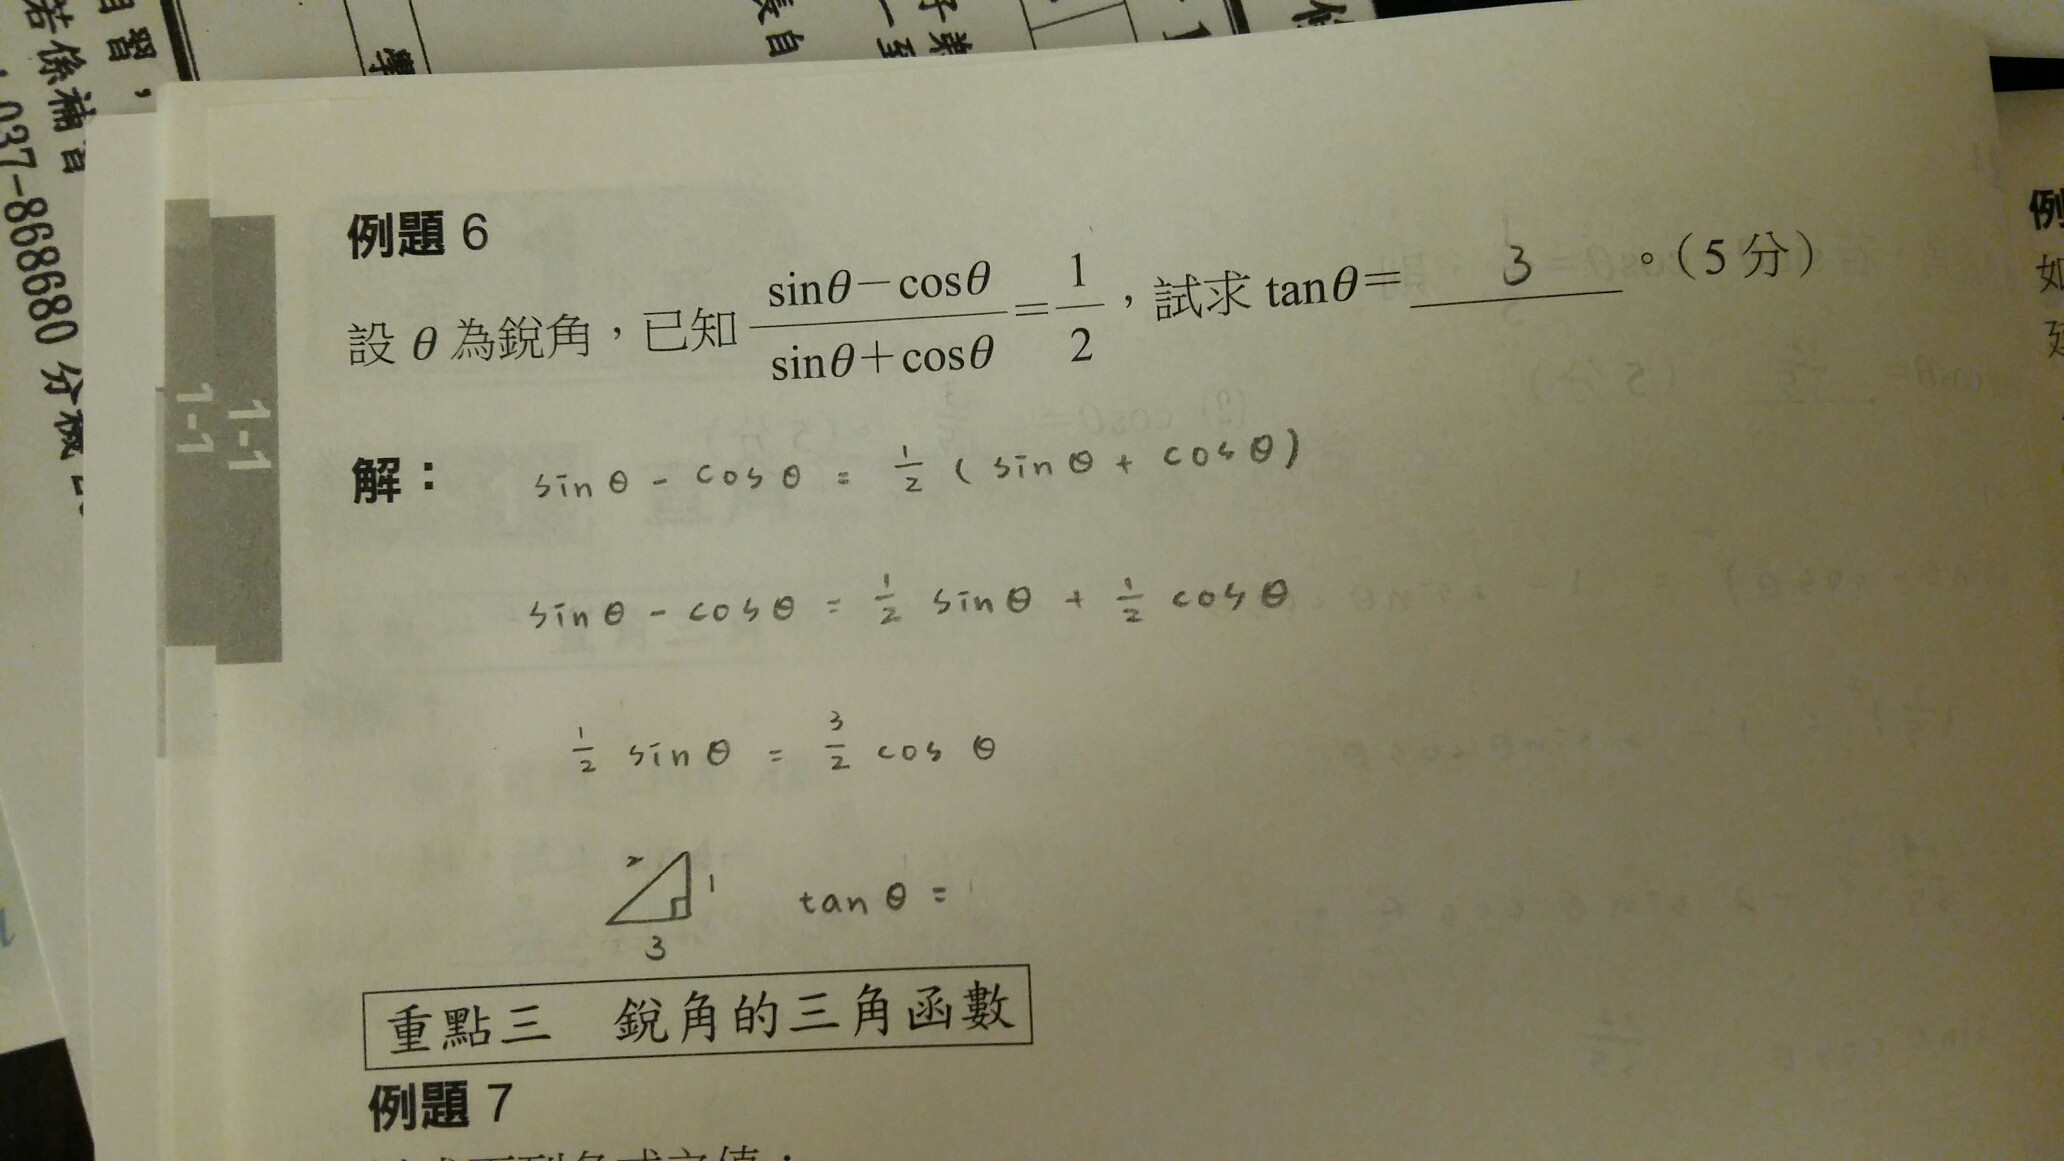 自習，
若係補習
037-868680 分機
學
長自
一至
子業
1-1
1-1
例題 6
設 θ 為銳角，已知 (sinθ－cosθ)/(sinθ＋cosθ)＝1/2，試求 tanθ＝ 3 。（5 分）
解：
sin θ - cos θ = 1/2 ( sin θ + cos θ )
sin θ - cos θ = 1/2 sin θ + 1/2 cos θ
1/2 sin θ = 3/2 cos θ
2
1
3
tan θ =
重點三 銳角的三角函數
例題 7
例
如